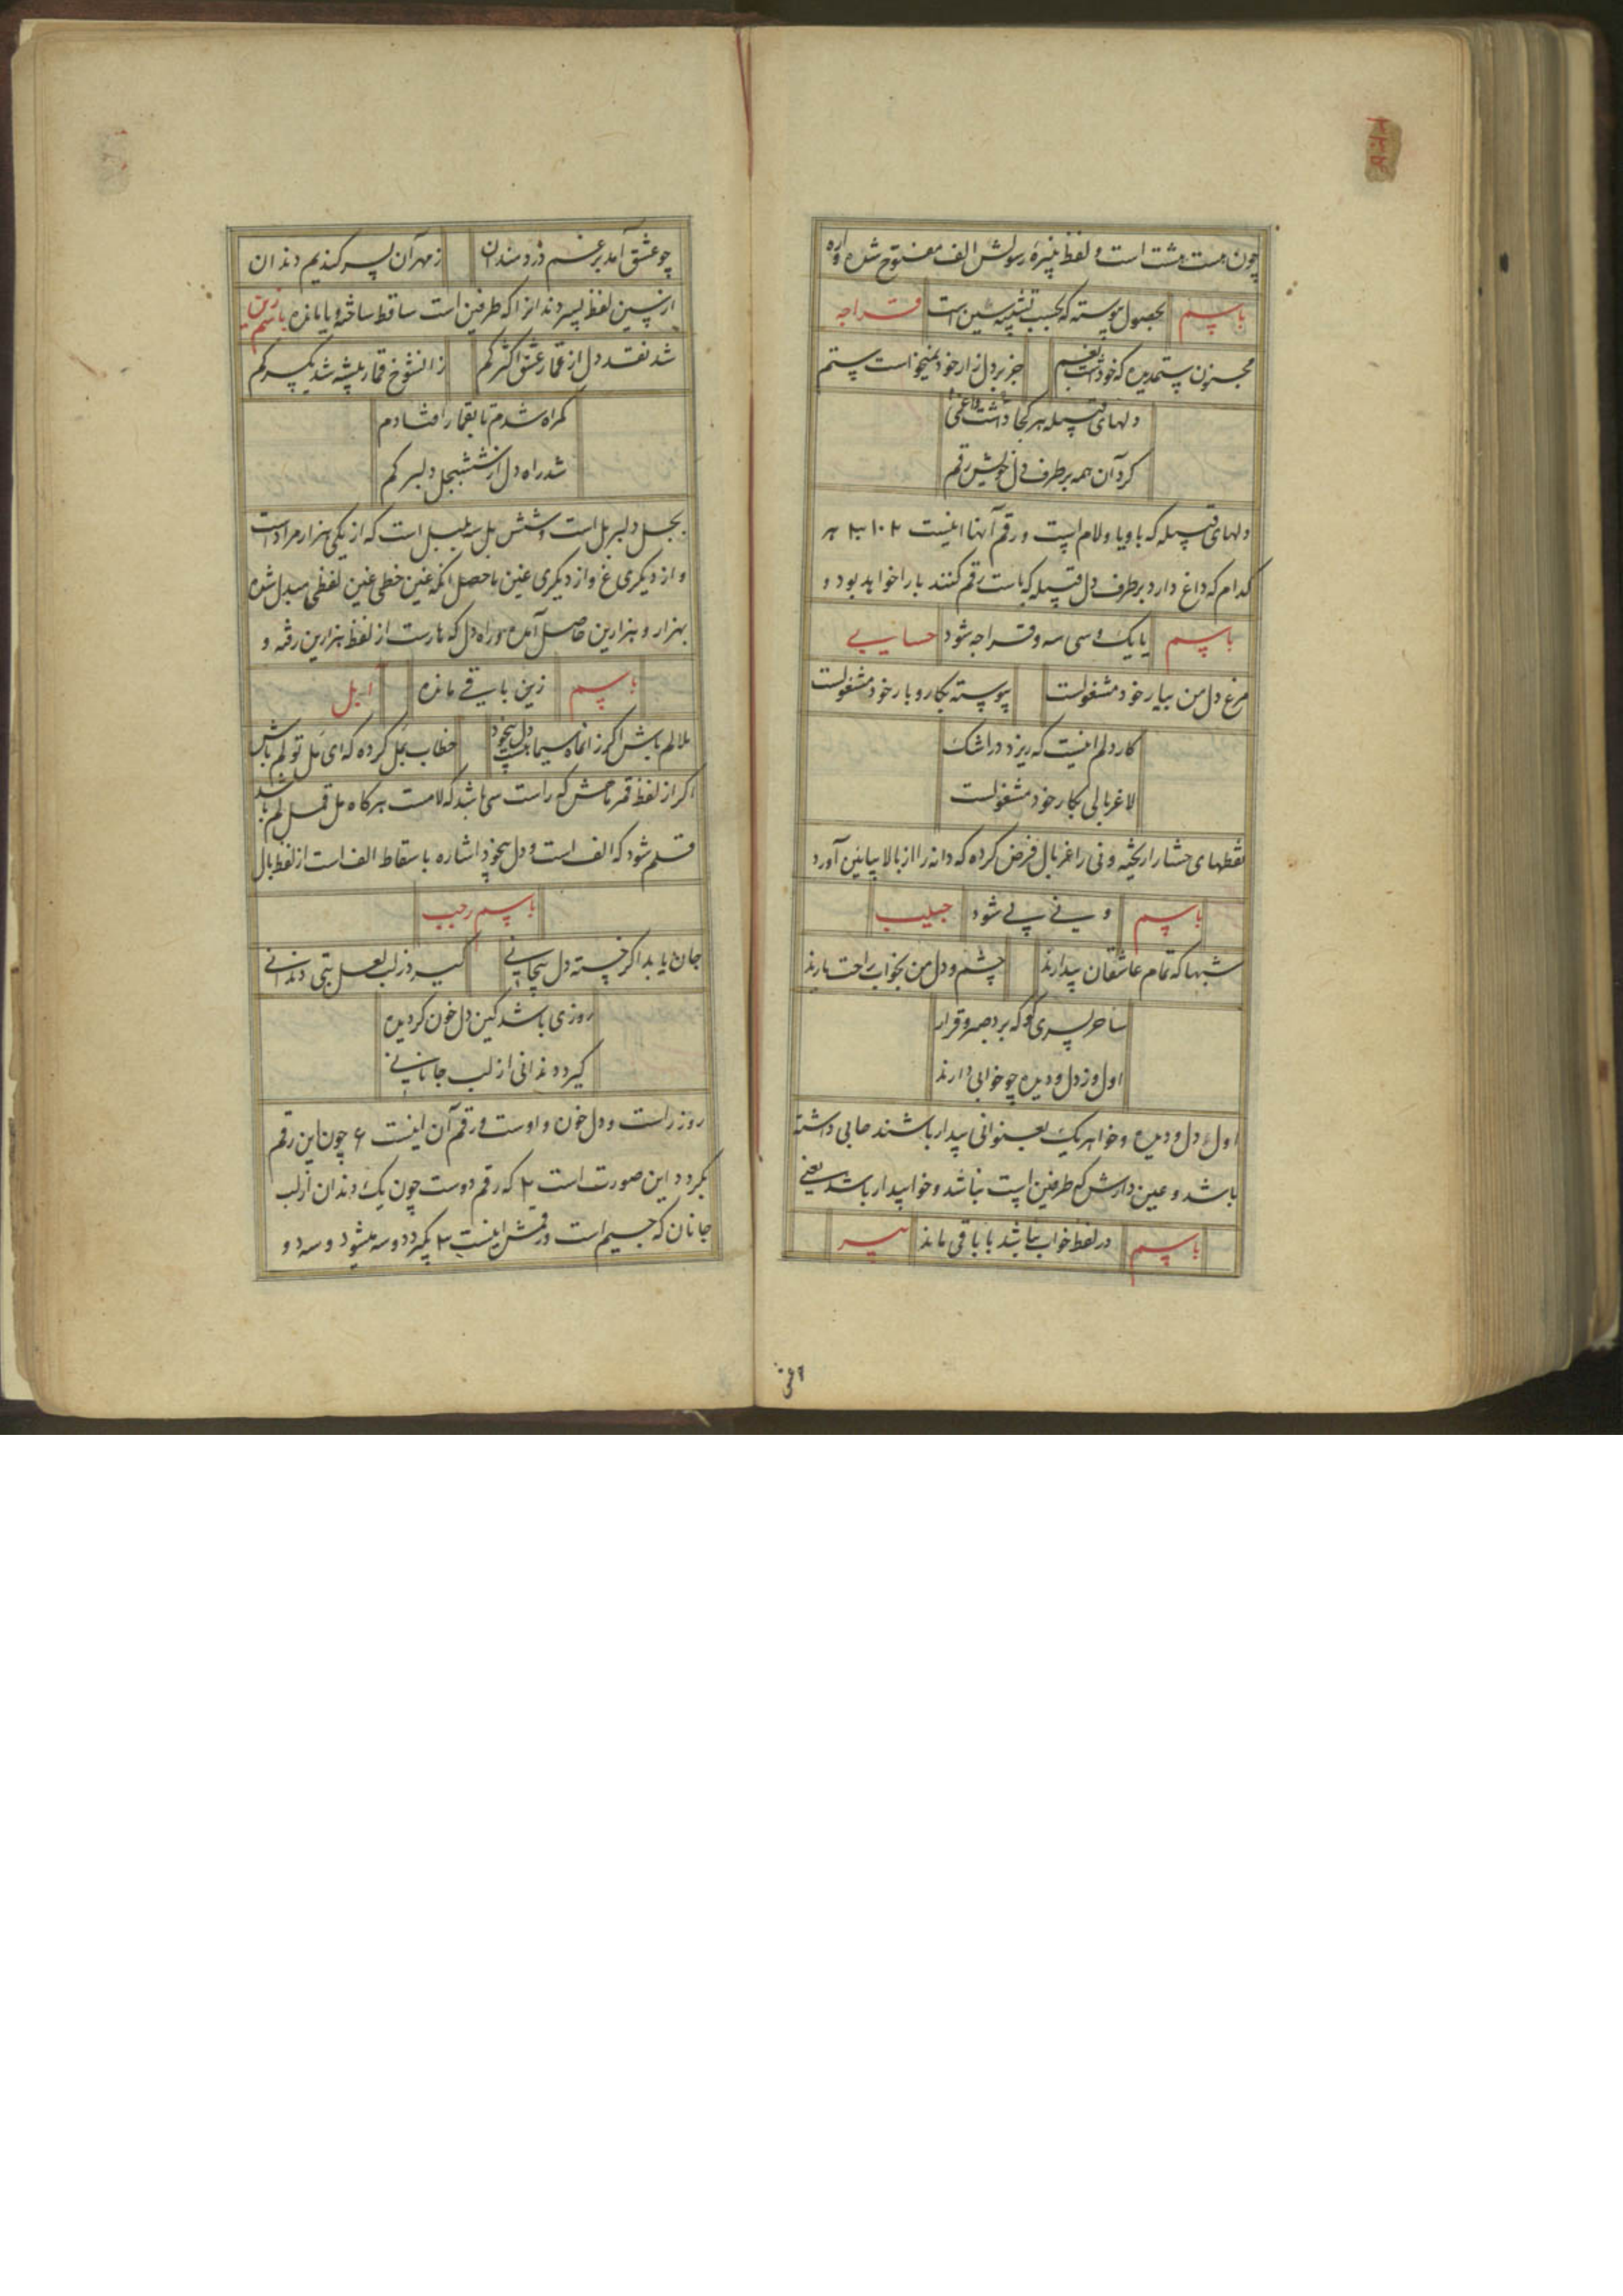 چون هست هشت است و لفظ پنیره رسولش الف مفتوح شده واره
باسم بحصول پیوسته که بحسب تشبیه شین است قراجه
محزون ستمدیده که خو داشت بغم جز بر دل زار خود نمیخواست ستم
دلهای قبیله هر کجا داشت داغی
کرد آن همه بر طرف دل خویش رقم
دلهای قبیله که با و یا و لام است و رقم آنها اینست ۲ ۱۰ ۳۰ هر
کدام که داغ دارد بر طرف دل قبیله که باست رقم کنند با را خواهد بود و
باسم یا یک و سی سه و قراجه شود حسابی
مرغ دل من بیار خود مشغولست پیوسته بکار و بار خود مشغولست
کار دلم اینست که ریزد در اشک
لاغر بالی بکار خود مشغولست
نقطهای حشار را ریخته و نی را غربال فرض کرده که دانه را از بالا بپایین آورد
باسم و نی بی شود حبیب
شبها که تمام عاشقان بیدارند چشم و دل من بخواب راحت یارند
ساحر پسری کو که برد صبر و قرار
اول و ز دل و دیده چو خوابی دارند
اول و دل و دیده و خواهر یک بعنوانی بیدار باشند صابی داشته
باشد و عین دارش که طرفین است نباشد و خوابیدار باشد یعنی
باسم در لفظ خواب نباشد با باقی ماند
چو عشق آمد بر غم دردمندان ز مهر آن پسر کندیم دندان
از پسین لفظ پسر دندانرا که طرفین است ساقط ساخته و یا مانده باسم زین
شد نقد دل از قمار عشق اکثر کم زانشوخ قمار پیشه شد یکسر کم
کمراه شدم تا بقمار افتادم
شد راه دل از شش بجل دلبر کم
بجل دلبر بل است و شش بل سه بلبل است که از یکی هزار مراد است
و از دیکری غ و از دیکری غین ماحصل آنکه غین خطی غین لفظی مبدل شده
بهزار و هزارین حاصل آمده و راه دل که هارست از لفظ هزارین رفته و
باسم زین باقی مانده ابل
ملالم باش اکر ز انماه سیما دل بیخود خطاب بمل کرده که ای مل تو لم باش
اکر از لفظ قمر ماحش که راست سی باشد که لامست هرکاه مل قمل لم باشد
قلم شود که الف است و دل بیخود اشاره باسقاط الف است از لفظ بال
باسم رجب
جان یابد اکر خسته دل بیجانی کیرد ز لب لعل بتی دندانی
روزی باشد کین دل خون کردیده
کیرد دندانی از لب جانانی
روز راست و دل خون و اوست و رقم آن اینست ۶ چون این رقم
بکردد این صورت است ۲ که رقم دوست چون یک دندان از لب
جانان که جیم است و رقمش اینست ۳ بکیرد دو سه میشود و سه دو